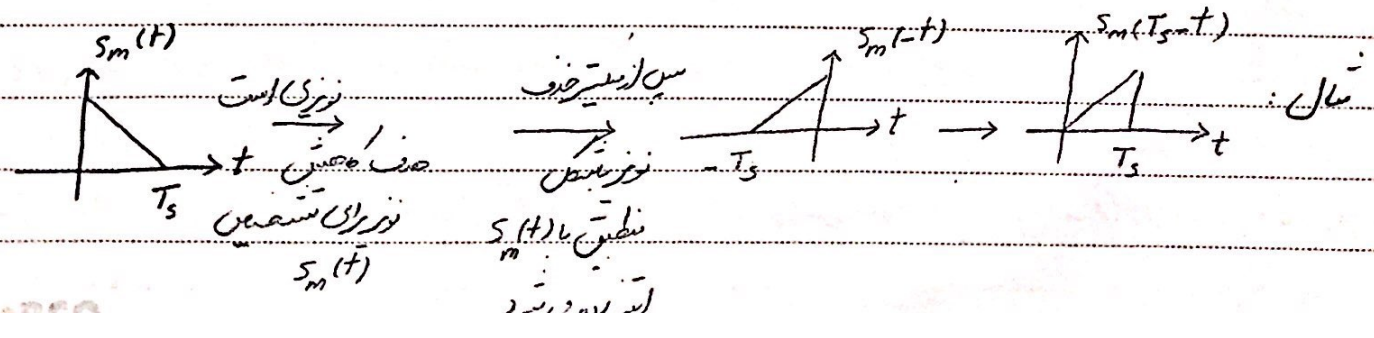 مثال :
S_m(t)
t
T_s
نویزی است
هدف کاهش
نویز برای تشخیص
S_m(t)
پس از فیلتر حذف
نویز بشکل
منطبق با S_m(t)
S_m(-t)
t
-T_s
S_m(T_s-t)
t
T_s